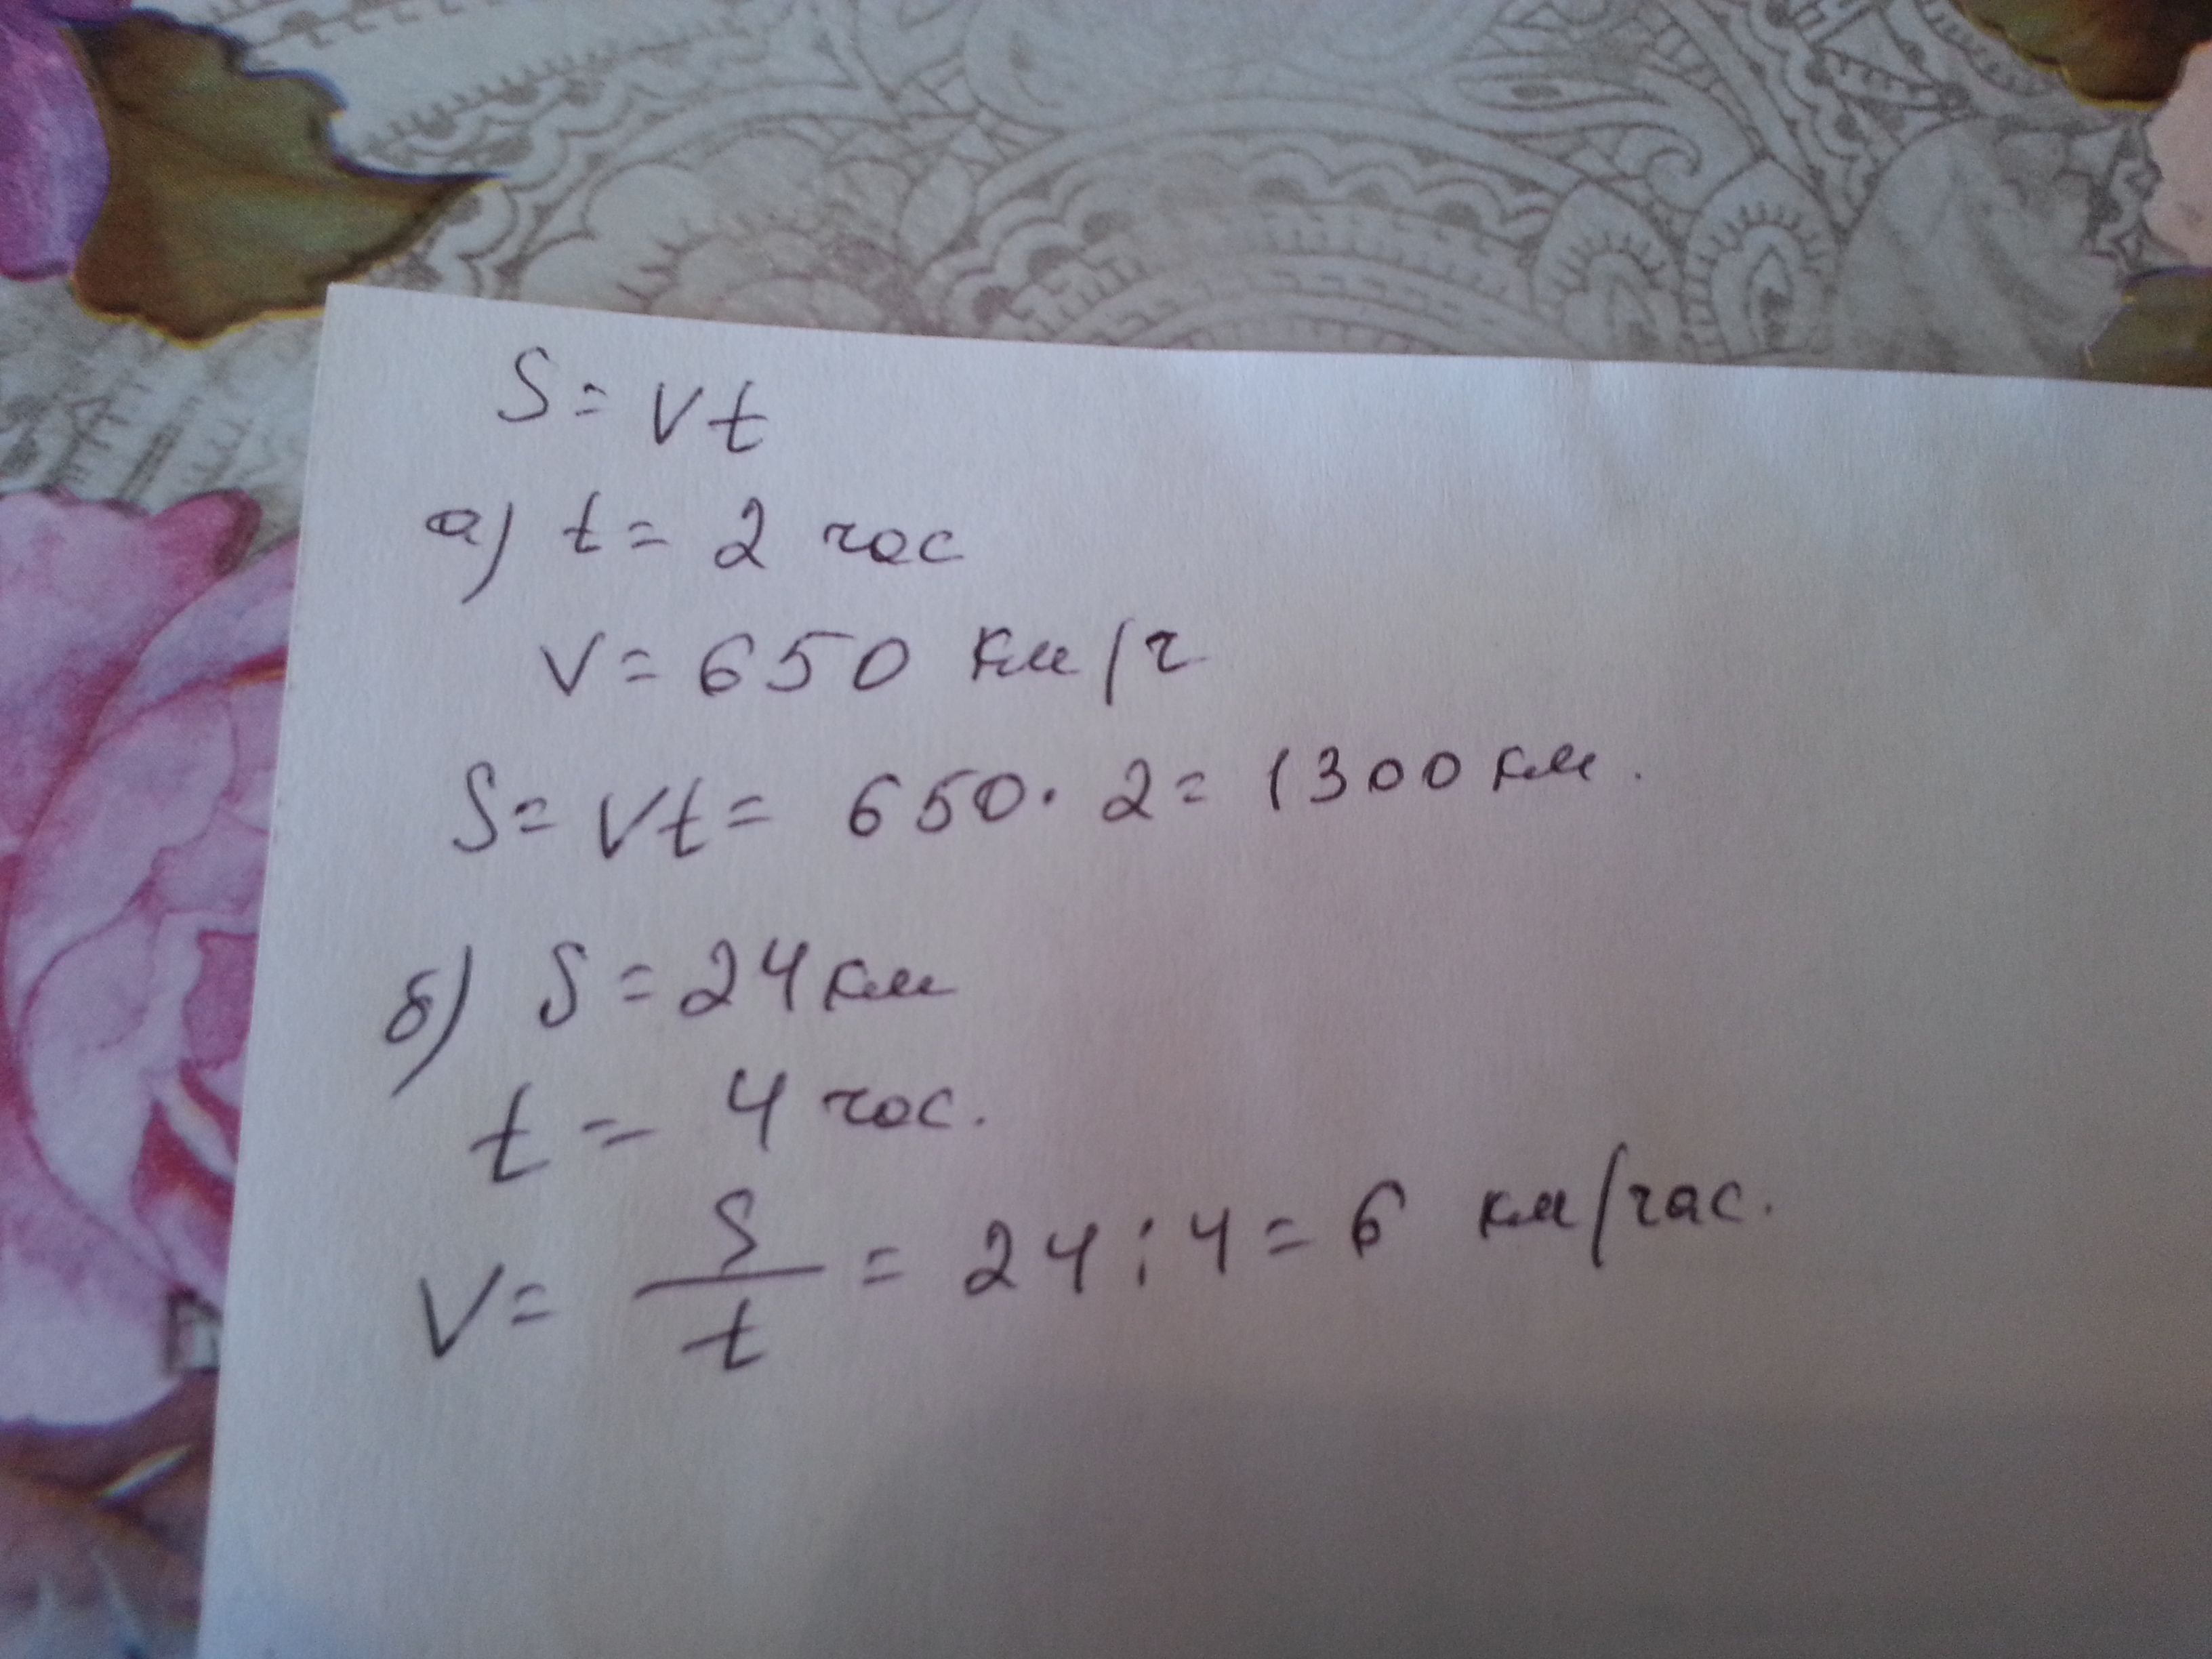 S = Vt
а) t = 2 час
V = 650 км/ч
S = Vt = 650 · 2 = 1300 км.
б) S = 24 км
t = 4 час.
V = S/t = 24 : 4 = 6 км/час.